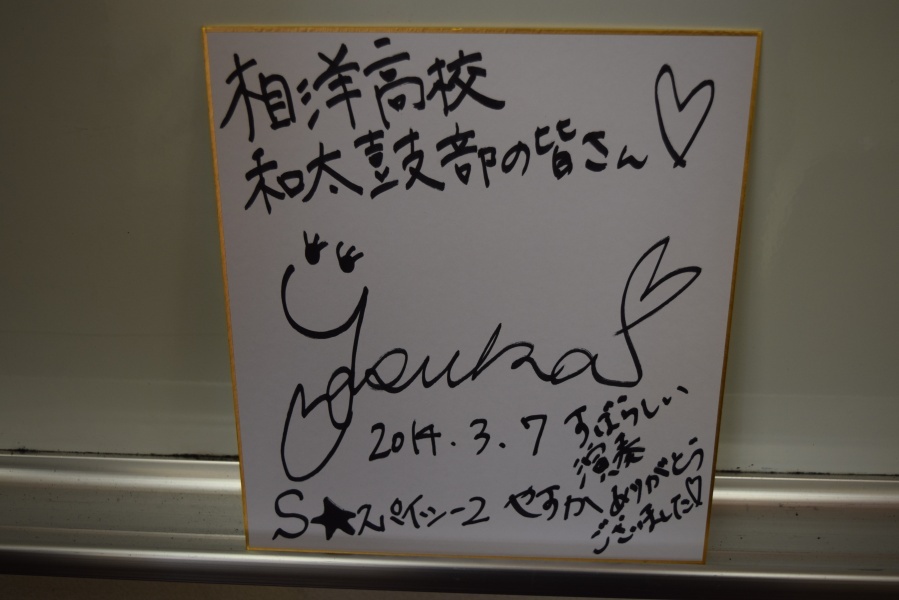 相洋高校
和太鼓部の皆さん♡
yasuka
2014.3.7
すばらしい
演奏
ありがとう
ございました♡
S★スパイシー2 やすか